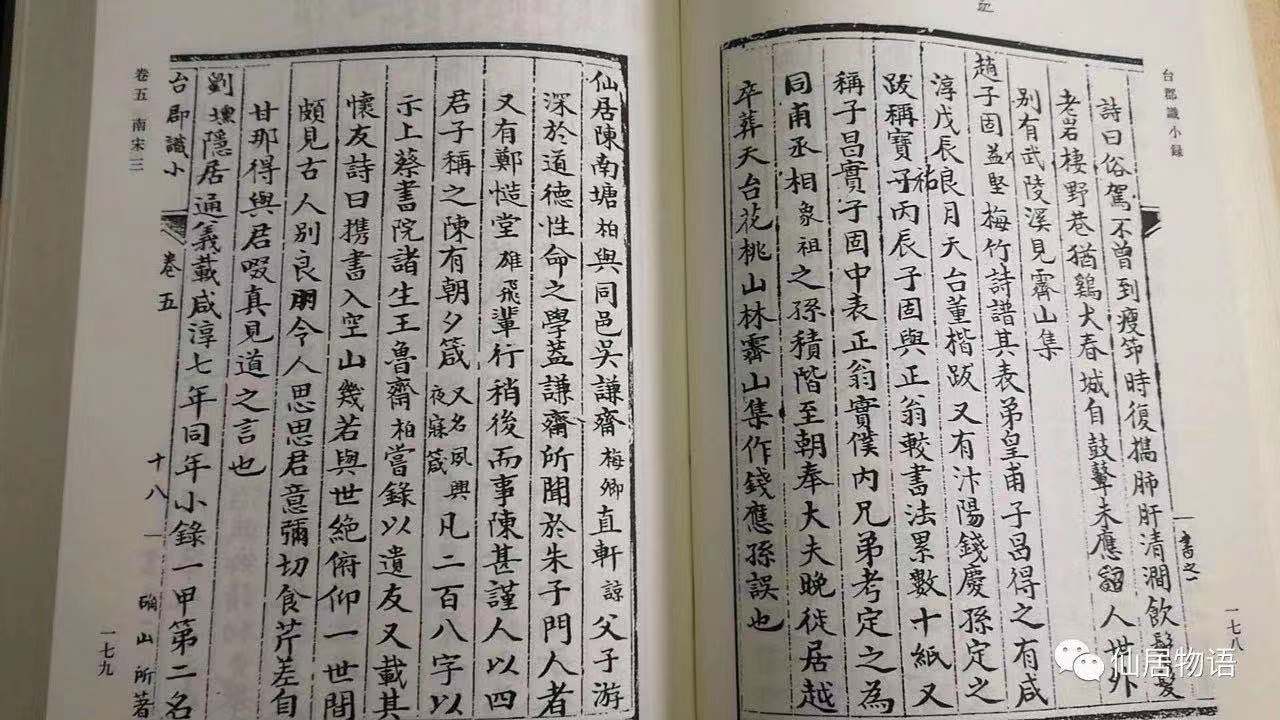 台郡識小録
詩曰俗駕不曾到瘦筇時復攜肺肝清澗飲髮
老岩棲野巷猶鷄犬春城自鼓鼙未應 人世外
別有武陵溪見霽山集
趙子固孟堅梅竹詩譜其表弟皇甫子昌得之有咸
淳戊辰良月天台董楷跋又有汴陽錢慶孫定之
跋稱寶祐子丙辰子固與正翁較書法累數十紙又
稱子昌實子固中表正翁實僕內兄弟考定之為
同甫丞相象祖之孫積階至朝奉大夫晚徙居越
卒葬天台花桃山林霽山集作錢應孫誤也
一七八
仙居陳南塘柏與同邑吳謙齋梅卿直軒諒父子游
深於道德性命之學蓋謙齋所聞於朱子門人者
又有鄭慥堂雄飛輩行稍後而事陳甚謹人以四
君子稱之陳有朝夕箴又名夙興夜寐箴凡二百八字以
示上蔡書院諸生王魯齋柏嘗錄以遺友又載其
懷友詩曰攜書入空山幾若與世絕俯仰一世間
頗見古人別良朋今人思思君意彌切食芹差自
甘那得與君啜真見道之言也
劉壎隱居通義載咸淳七年同年小錄一甲第二名
台郡識小 卷五 十八 碻山所著
卷五 南宋三
一七九
仙居物语